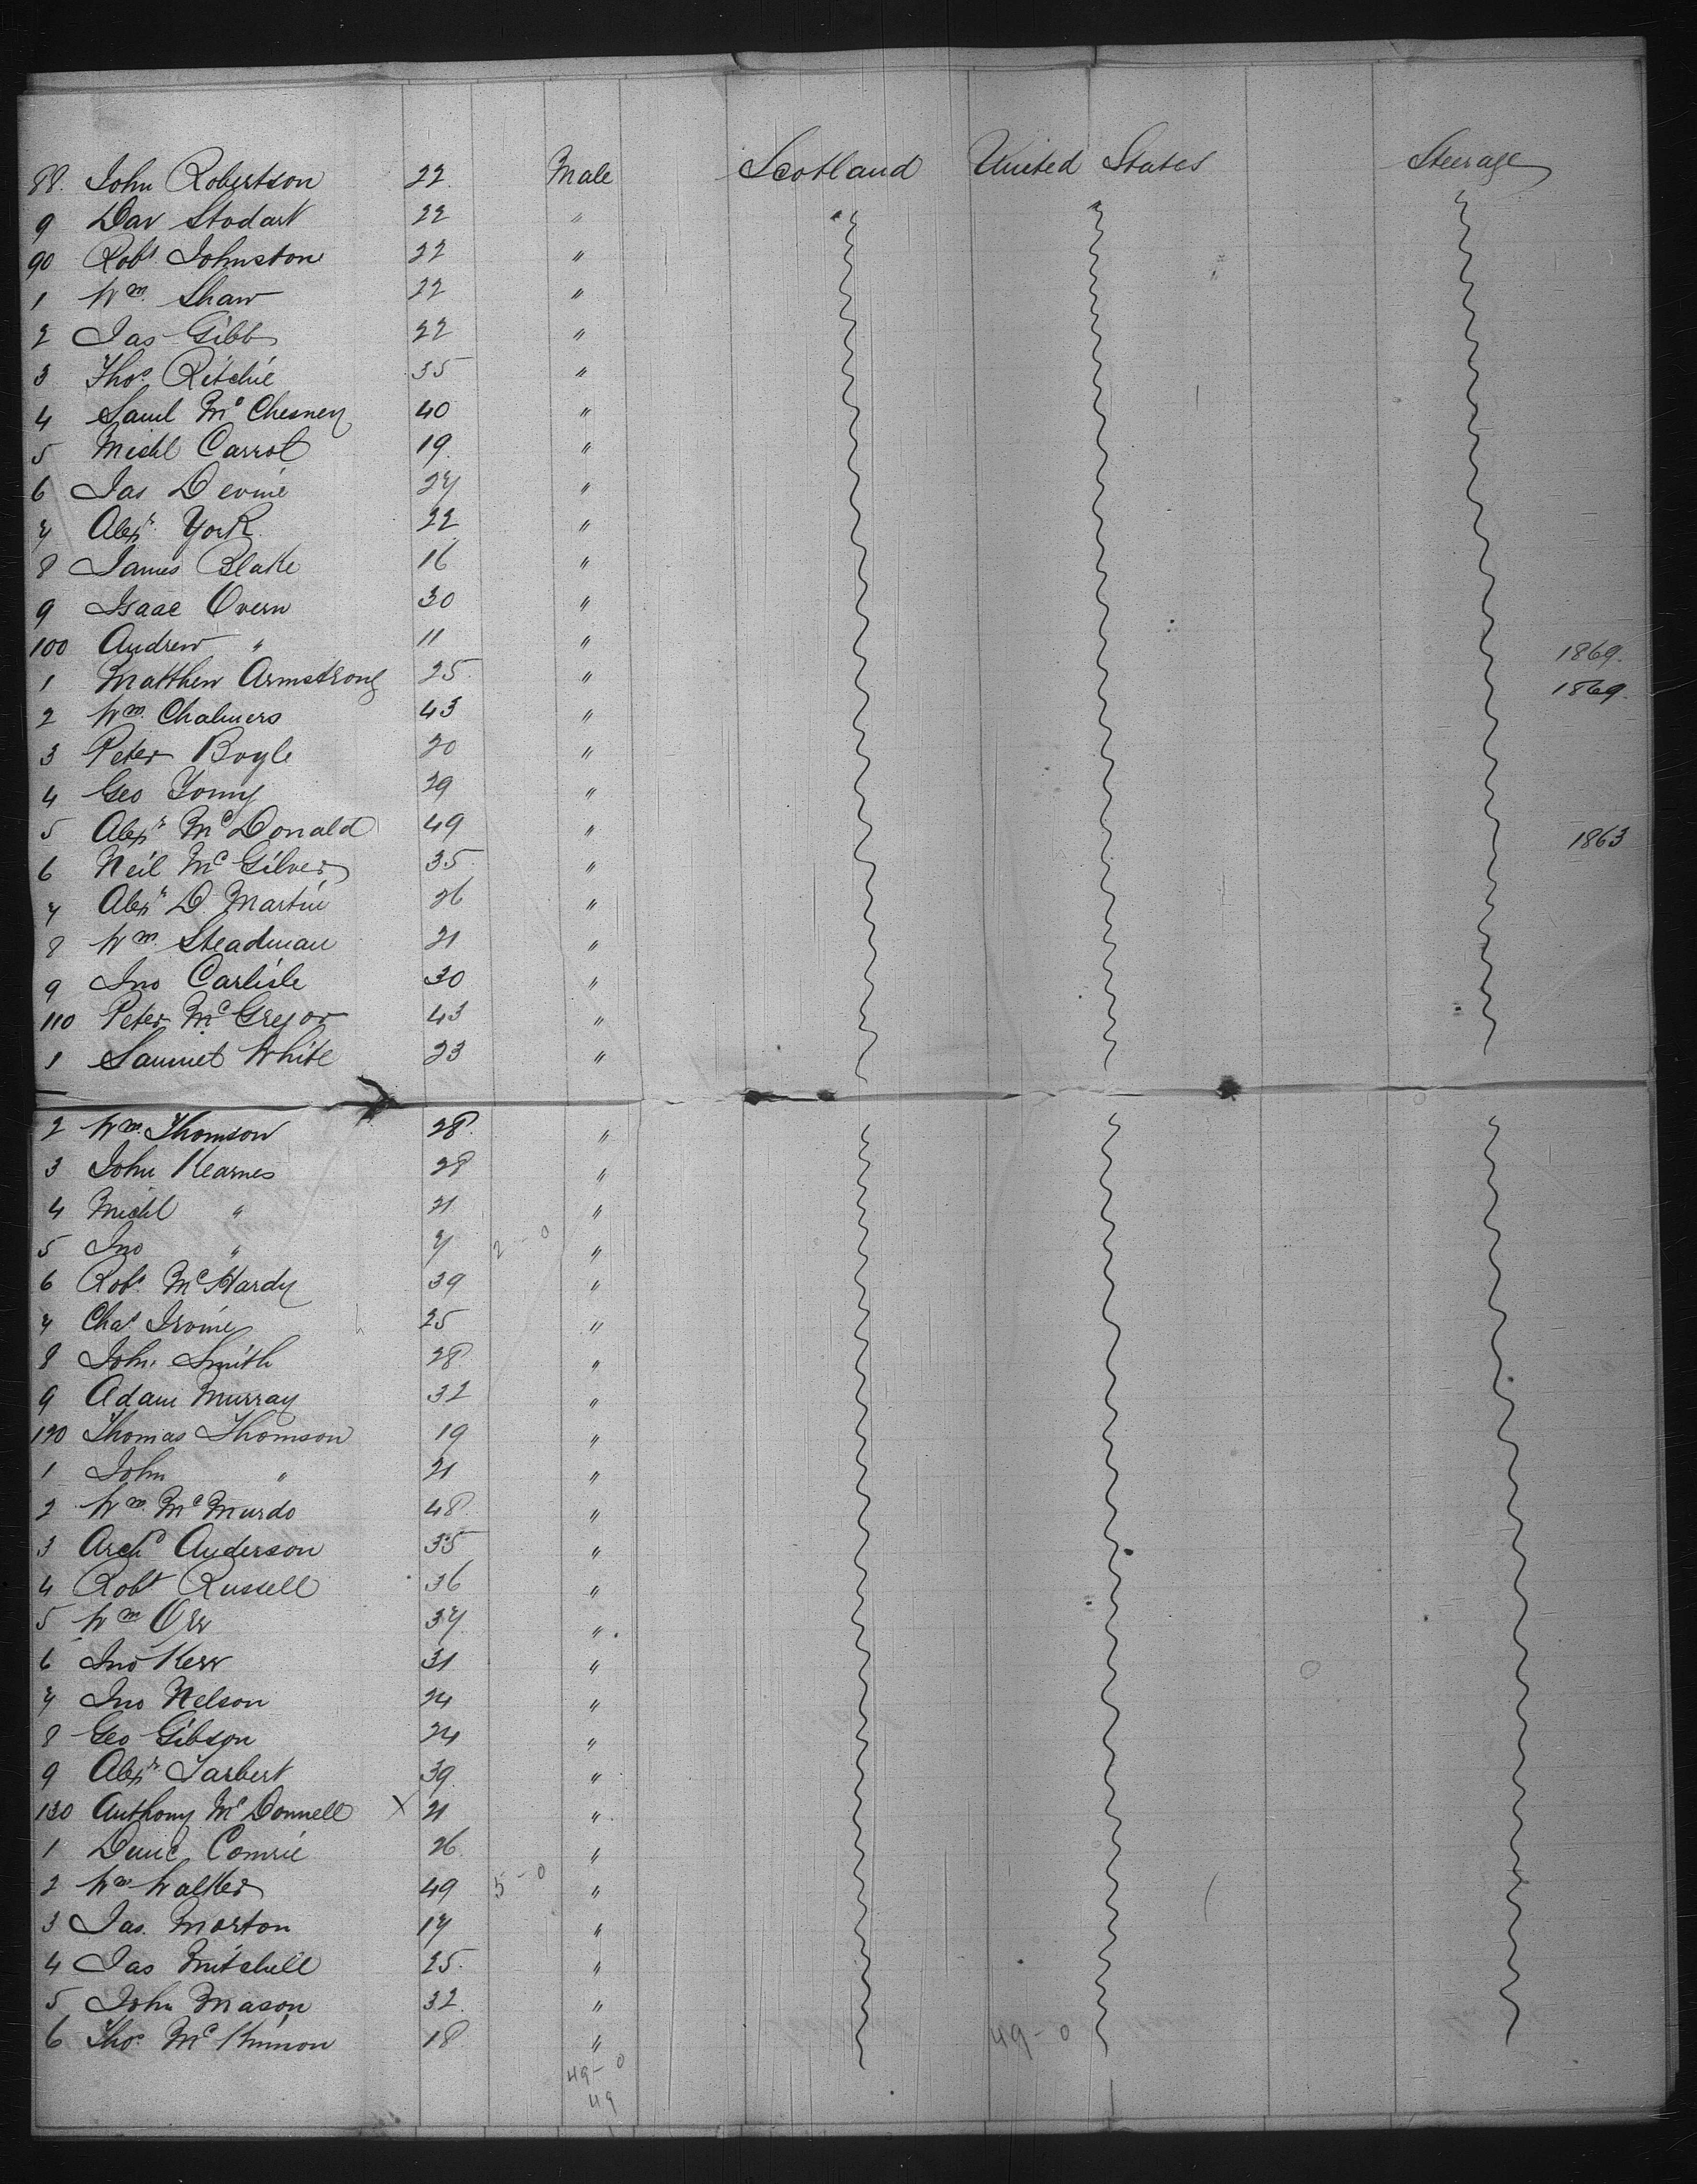 88. John Robertson 22 Male Scotland United States Steerage
9 Dav Stodart 22 "
90 Robt Johnston 22 "
1 Wm. Shaw 22 "
2 Jas Gibb 22 "
3 Thos. Ritchie 35 "
4 Saml Mc Chesney 40 "
5 Michl Carrol 19. "
6 Jas Devine 27 "
7 Alexr. York 22 "
8 James Blake 16 "
9 Isaac Overn 30 "
100 Andrew " 11 " 1869.
1 Matthew Armstrong 25. " 1869.
2 Wm. Chalmers 43 "
3 Peter Boyle 20 "
4 Geo Young 29 "
5 Alexr Mc Donald 49 " 1863
6 Neil Mc Gilver 35 "
7 Alexr D. Martin 26 "
8 Wm. Steadman 21 "
9 Jno Carlisle 30 "
110 Peter McGregor 43 "
1 Samuel White 23 "
2 Wm. Thomson 28. "
3 John Kearnes 28 "
4 Michl " 21 "
5 Jno " 7 2-0 "
6 Robt. McHardy 39 "
7 Chas. Irvine 25 "
8 John Smith 28 "
9 Adam Murray 32 "
120 Thomas Thomson 19 "
1 John " 21 "
2 Wm. McMurdo 48. "
3 Archd Anderson 35 "
4 Robt Russell 36 "
5 Wm Orr 37 "
6 Jno Kerr 31 "
7 Jno Nelson 24 "
8 Geo Gibson 24 "
9 Alexr Tarbert 39 "
130 Anthony McDonnell X 21 "
1 Dunc Comrie 26 "
2 Wm Walker 49 5-0 "
3 Jas. Morton 17 "
4 Jas Mitchell 25. "
5 John Mason 32. "
6 Thos. McKinnon 18 " 49-0
49-0
49